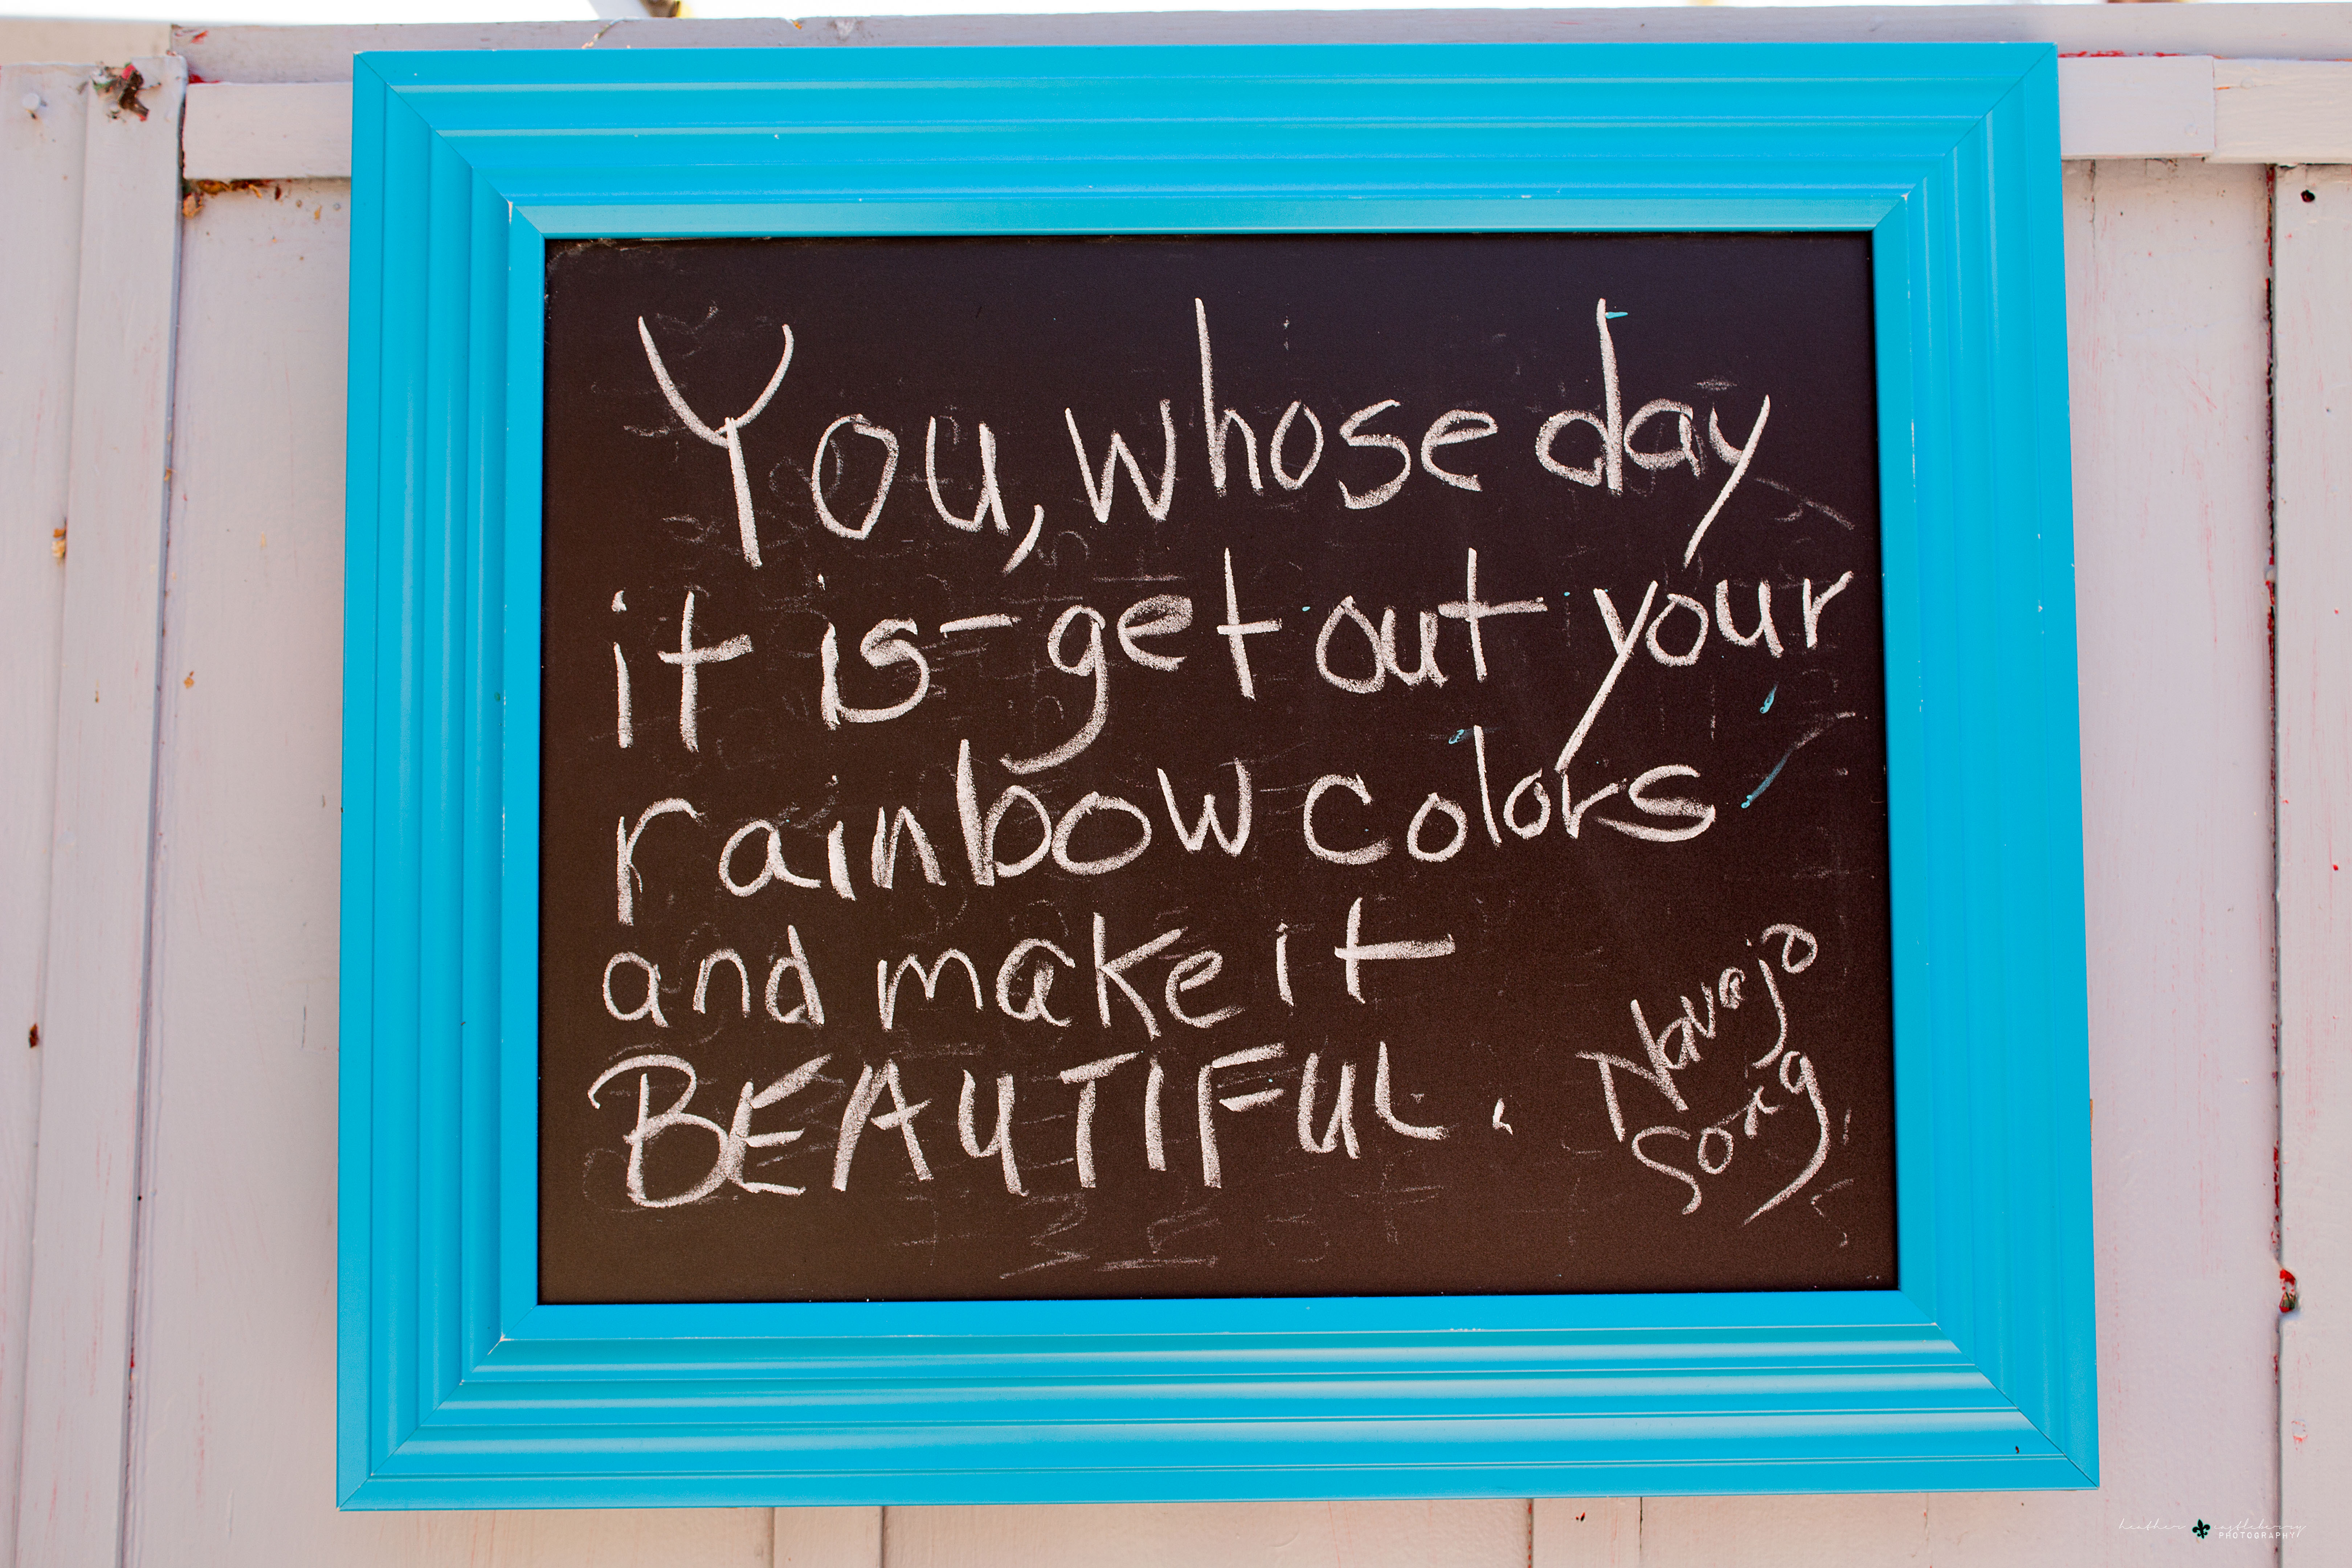 You, whose day
it is - get out your
rainbow colors
and make it
BEAUTIFUL.
Navajo
Song
heather castleberry
PHOTOGRAPHY